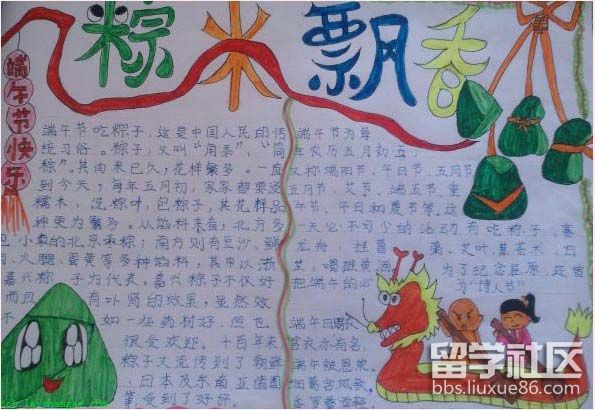 粽米飘香
端午节快乐
端午节吃粽子，这是中国人民的传
统习俗。粽子，又叫"角黍"、"筒
粽"。其由来已久，花样繁多。一直
到今天，每年五月初，家家都要浸
糯米、洗粽叶，包粽子，其花样品
种更为繁多。从馅料来看，北方多
包小枣的北京枣粽；南方则有豆沙、鲜
肉、火腿、蛋黄等多种馅料，其中以浙
嘉兴粽子为代表。嘉兴粽子不仅好
而且 有 的效果，虽然效
不 如一些药材好，但也
很受欢迎。千百年来
粽子又流传到了朝鲜
、日本及东南亚诸国
受到了好评。
端午节为每
年农历五月初五，
又称端阳节、午日节、五月节
五月节、艾节、端五节、重
午节、午日和夏节等。这
一天必不可少的活动有吃粽子、赛
龙舟，挂菖蒲、艾叶，薰苍术、白
芷，喝雄黄酒。
为了纪念屈原，还曾
把端午的 为"诗人节"
端午日赐衣
宫衣亦有名，
端午被恩荣。
细葛含风软，
香罗叠雪轻
留学社区
bbs.liuxue86.com